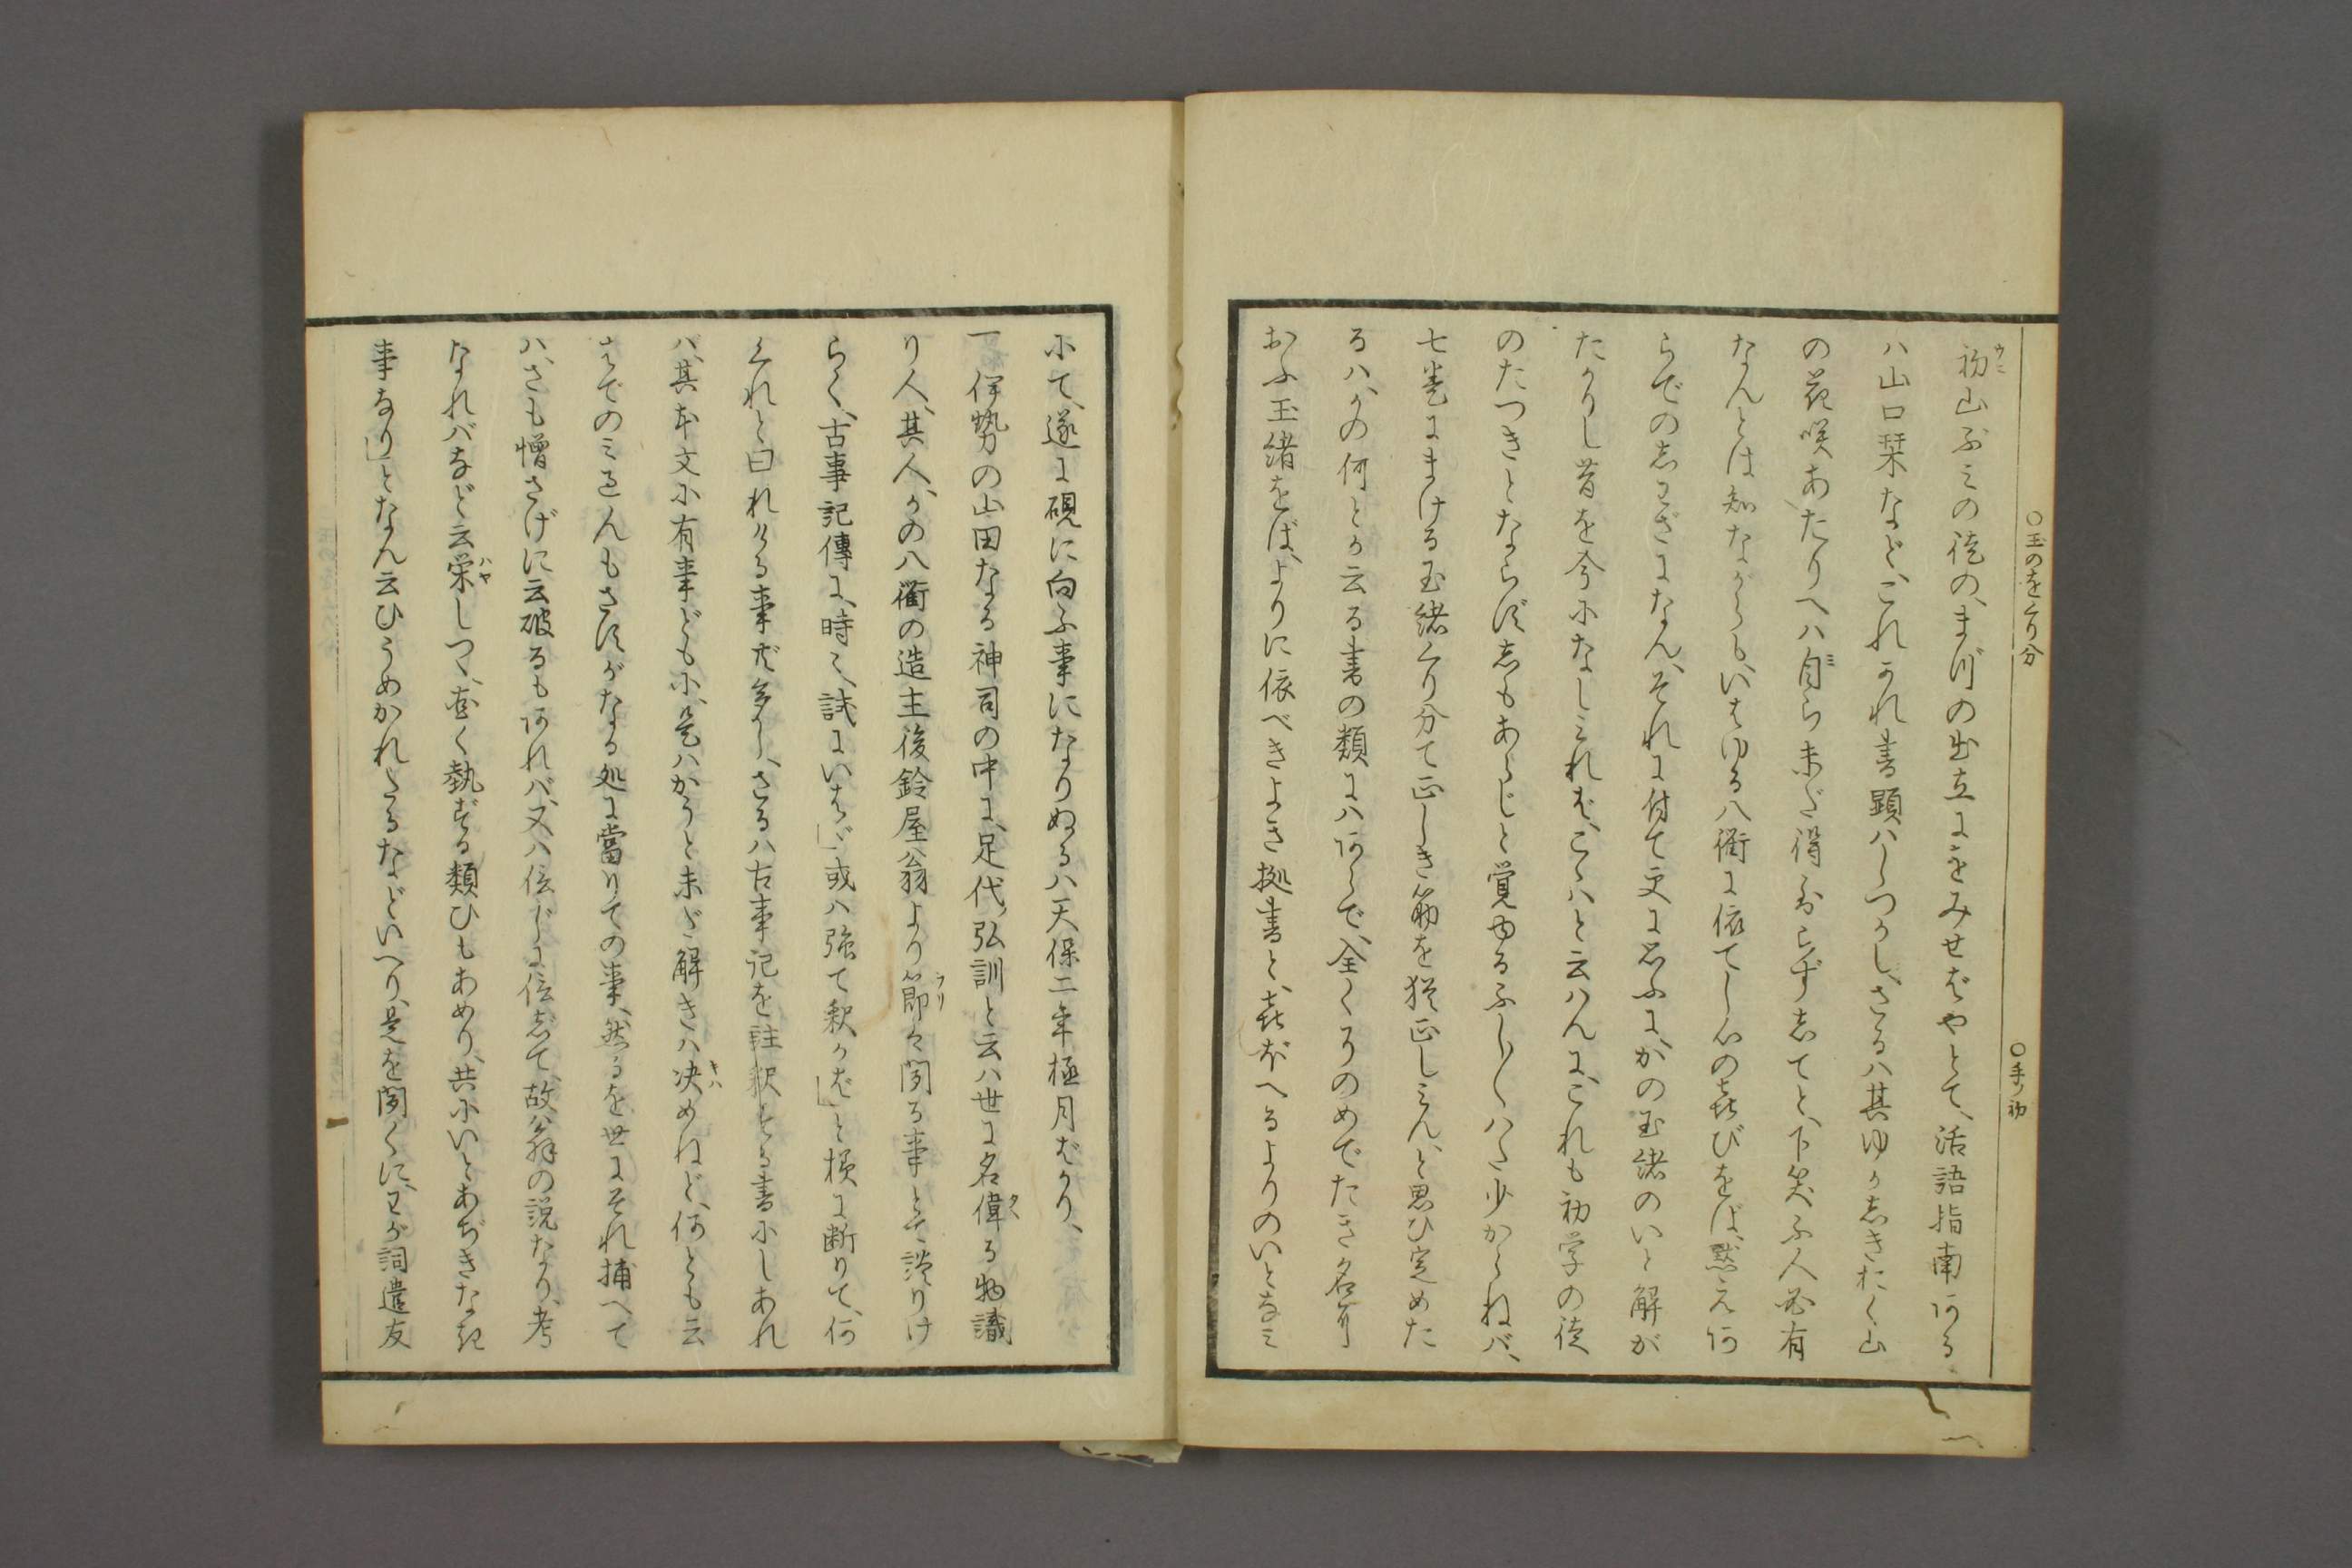 ○玉のをくり分
○手ノ初
初山ぶミの徒の、まづの出立にをみせばやとて、活語指南ある
ハ山口栞など、これかれ書顕ハしつかし、さるハ其ゆかしきおく山
の花咲あたりへハ自ら未ダ得いらずしてと、下笑ふ人必有
なんとは知ながらも、いはゆる八衢に依てし心の喜びをば、黙え何
らでのしわざになん、それに付て更に思ふに、かの玉緒のいと解が
たかりし昔を今になしミれば、こハと云ハんに、これも初学の徒
のたつきとならずしもあらじと覚ゆるふし〴〵ハた少からねバ、
七巻にまける玉緒くり分て正しき筋を猶正しミん、と思ひ定めた
るハ、かの何とか云る書の類にハあらで、全くかのめでたき名に
おふ玉緒をば、よりに依べきよき拠書と、喜ぼへるよりのいとなミ
にて、遂に硯に向ふ事になりぬるハ天保二年極月ばかり、
一 伊勢の山田なる神司の中に、足代弘訓と云ハ世に名偉る物識
り人、其人、かの八衢の造主後鈴屋翁より節々聞る事とて語りけ
らく、古事記傳に、時々、試にいはゞ」或ハ強て釈かば」と様に断りて、何
くれと曰れける事ども多し、さるハ古事記を註釈せる書にしあれ
バ、其本文に有事どもに、是ハかうと未ダ解きハ决めねど、何とも云
はでのミ過んもさすがなる処に當りての事、然るを世にそれ捕へて
ハ、さも憎さげに云破るも有れバ、又ハ信じに信じて、故翁の説なり、考
なれバなど云栄しつゝ、甚く執する類ひもあめり、共にいとあぢきなき
事なり」となん云ひうめかれたるなどいへり、是を聞くに、わが詞遣友